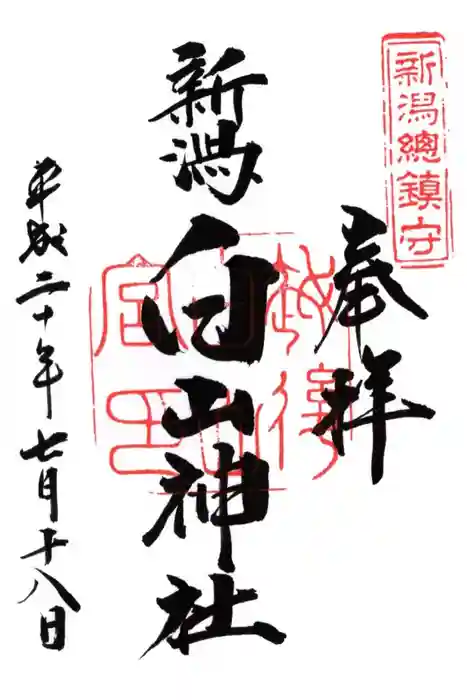 新潟總鎮守
奉拝
越後
白山
宮印
新潟白山神社
平成二十年七月十八日